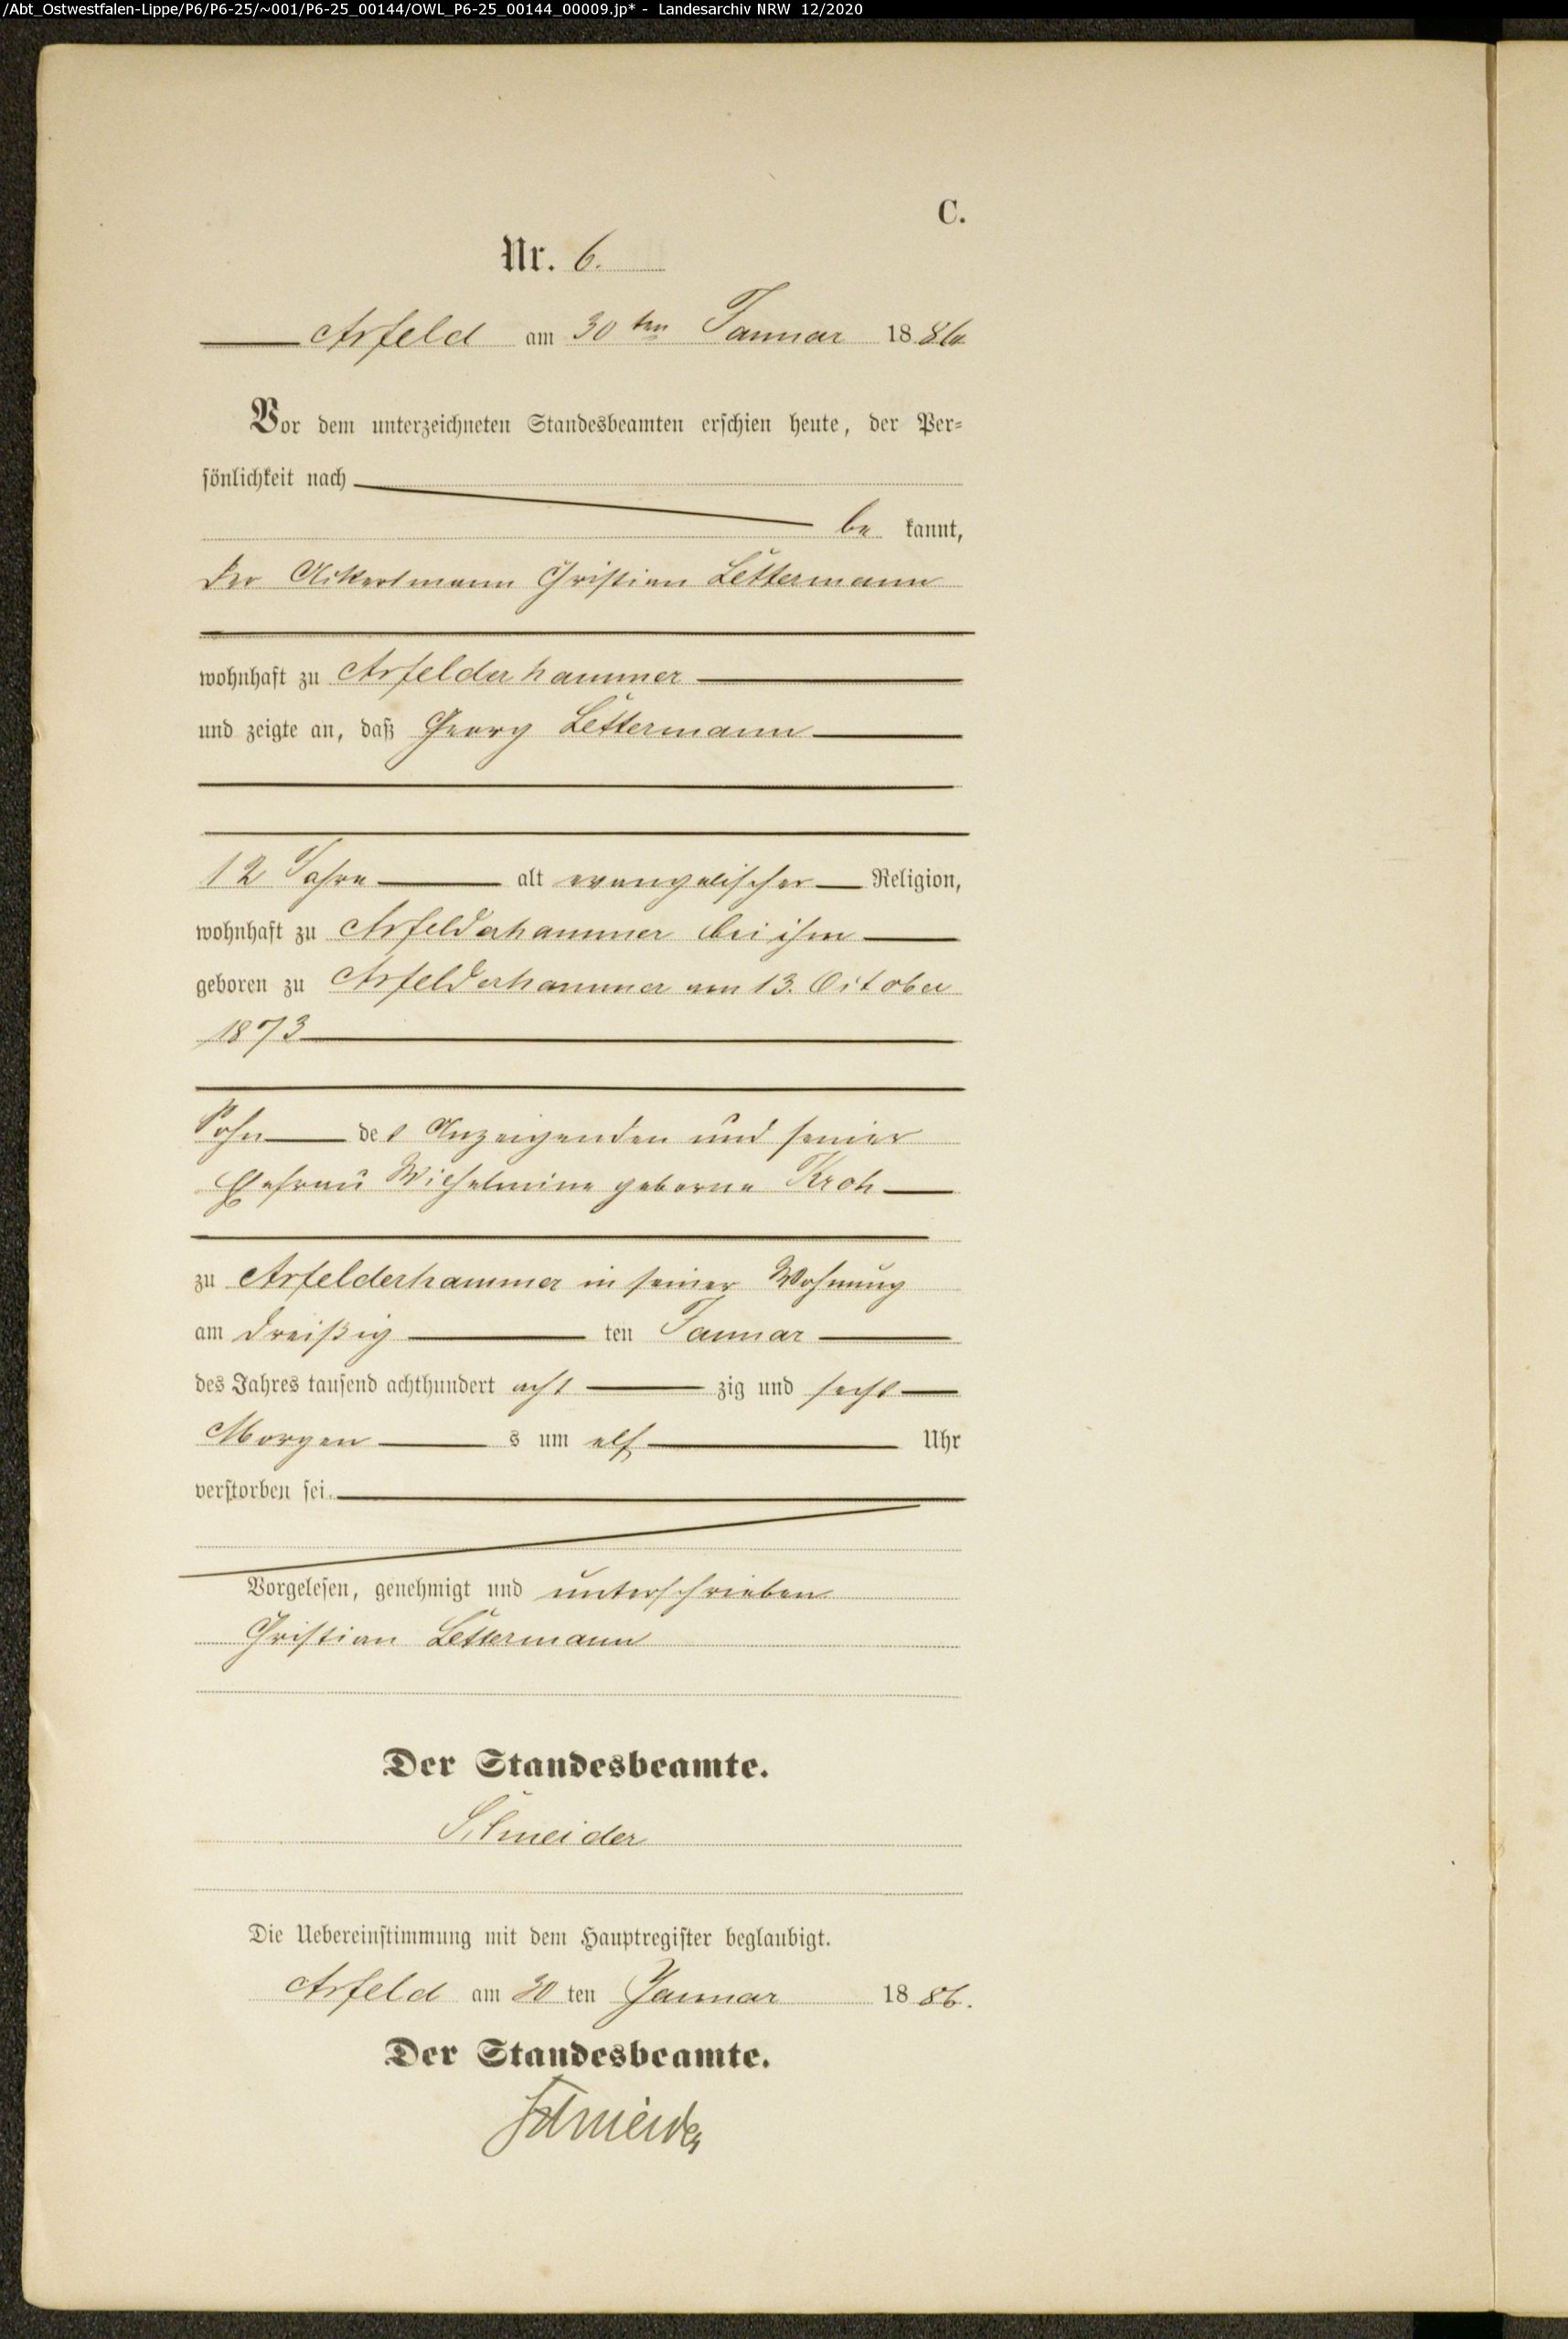 /Abt_Ostwestfalen-Lippe/P6/P6-25/~001/P6-25_00144/OWL_P6-25_00144_00009.jp* - Landesarchiv NRW 12/2020
C.
Nr. 6.
Arfeld am 30ten Januar 1886
Vor dem unterzeichneten Standesbeamten erschien heute, der Per-
sönlichkeit nach
be kannt,
der Ackersmann Christian Lettermann
wohnhaft zu Arfelderhammer
und zeigte an, daß Georg Lettermann
12 Jahre alt evangelischer Religion,
wohnhaft zu Arfelderhammer bei ihm
geboren zu Arfelderhammer am 13. October
1873
Sohn des Anzeigenden und seiner
Ehefrau Wilhelmine geborne Kroh
zu Arfelderhammer in seiner Wohnung
am dreißig ten Januar
des Jahres tausend achthundert acht zig und sechs
Morgen s um elf Uhr
verstorben sei.
Vorgelesen, genehmigt und unterschrieben
Christian Lettermann
Der Standesbeamte.
Schneider
Die Uebereinstimmung mit dem Hauptregister beglaubigt.
Arfeld am 30 ten Januar 1886.
Der Standesbeamte.
Schneider